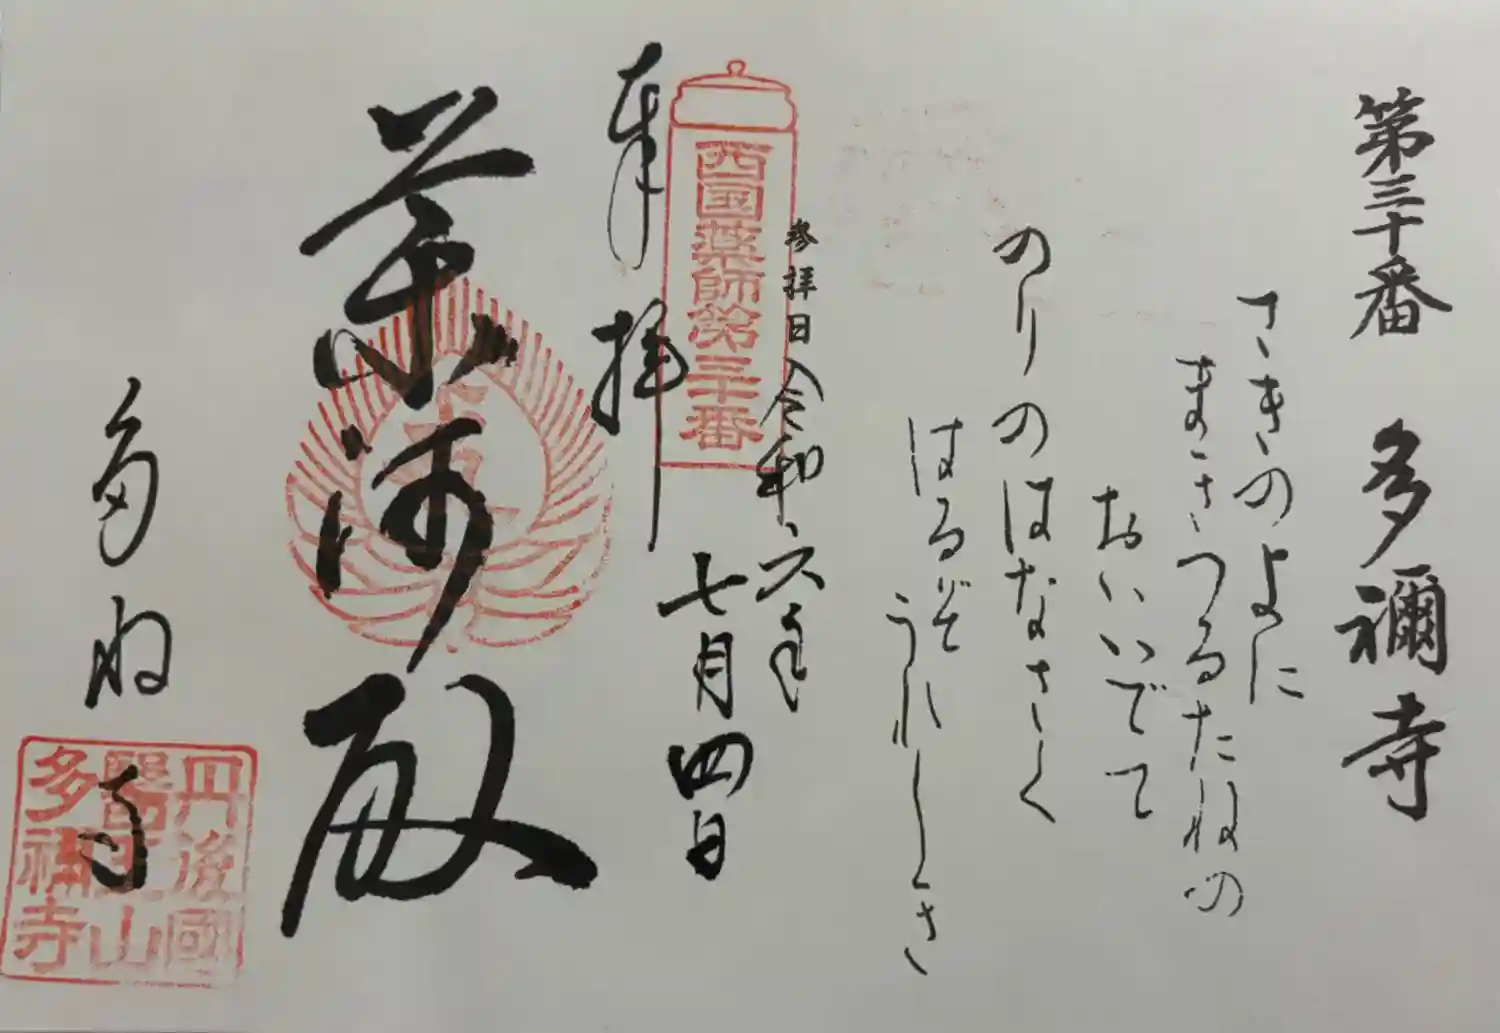 第三十番 多禰寺
さきのよに
まきつるたねの
おいいでて
のりのはなさく
はるぞうれしき
参拝日 令和六年
七月四日
西国薬師第三十番
奉拝
薬師殿
多ね寺
丹後國
醫王山
多禰寺